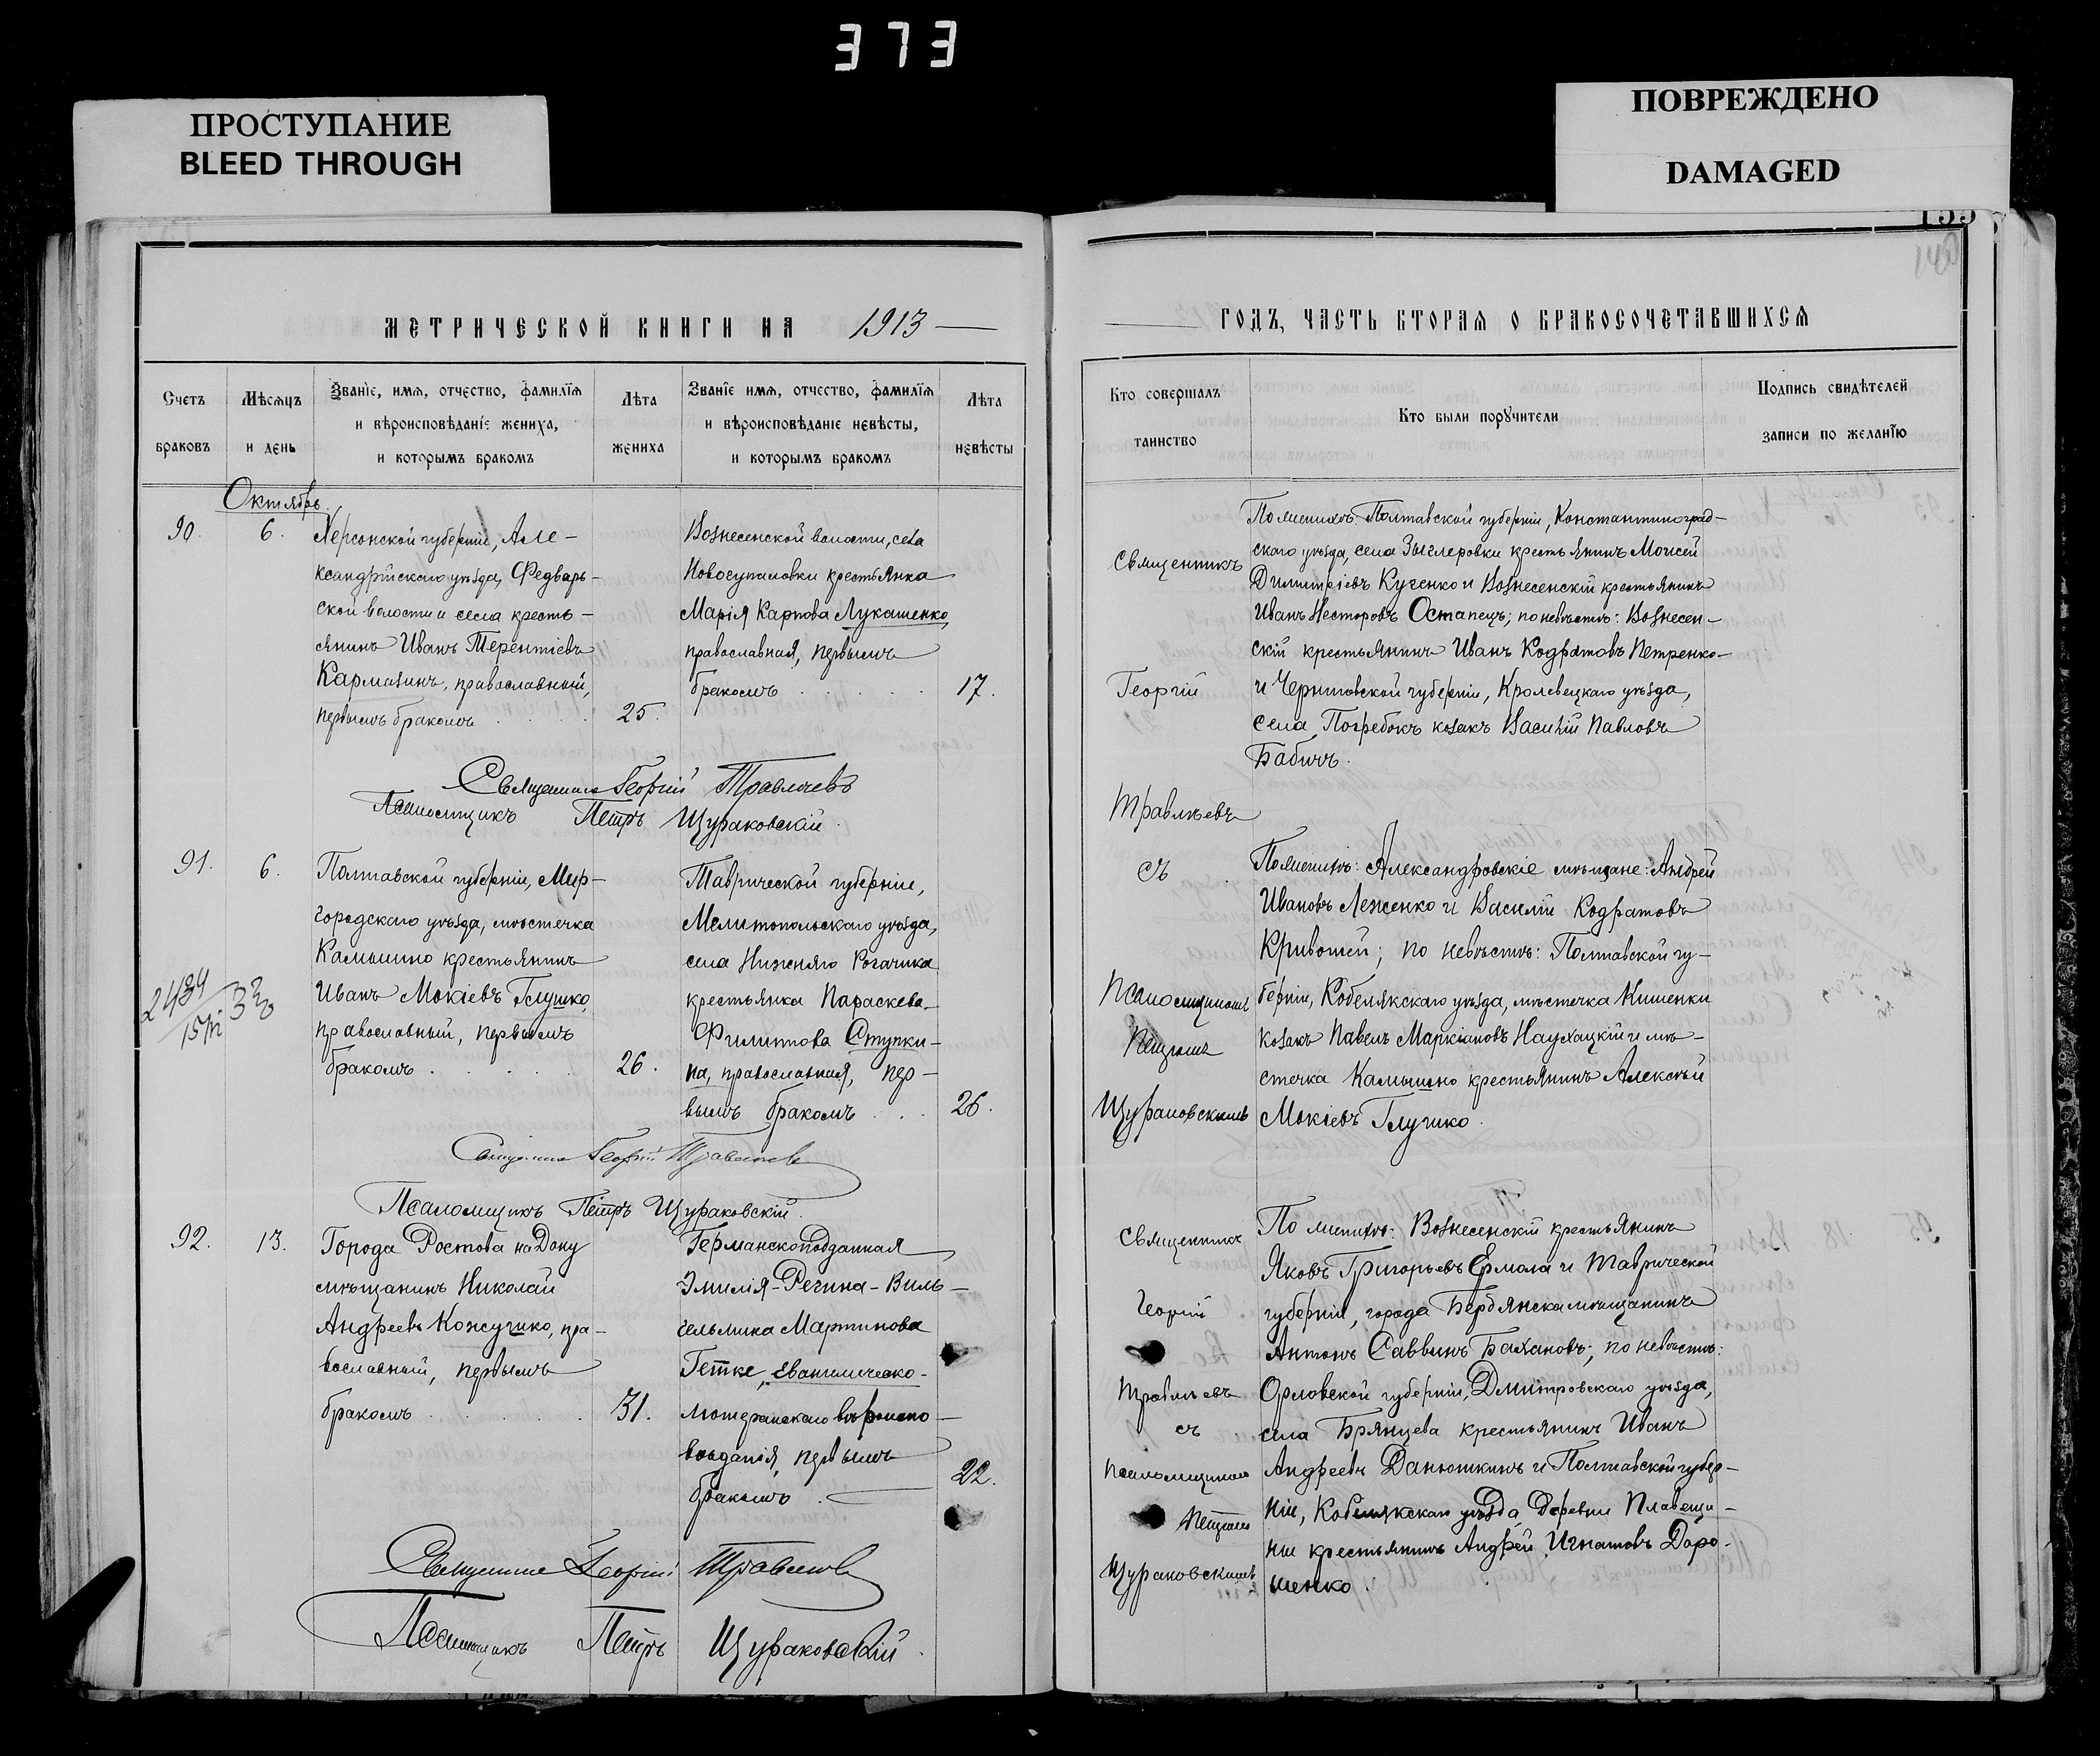 373
ПРОСТУПАНИЕ
BLEED THROUGH
ПОВРЕЖДЕНО
DAMAGED
МЕТРИЧЕСКОЙ КНИГИ НА 1913
Счетъ браковъ
Мѣсяцъ и день
Званіе, имя, отчество, фамилія
и вѣроисповѣданіе жениха,
и которымъ бракомъ
Лѣта жениха
Званіе имя, отчество, фамилія
и вѣроисповѣданіе невѣсты,
и которымъ бракомъ
Лѣта невѣсты
Октябрь.
90.
6.
Херсонской губерніи, Але-
ксандрійскаго уѣзда, Федварь-
ской волости и села кресть-
янинъ Иванъ Терентіевъ
Кармазинъ, православный,
первымъ бракомъ
25.
Вознесенской волости, села
Новогупаловки крестьянка
Марія Карпова Лукашенко,
православная, первымъ
бракомъ
17.
Священникъ Георгій
Псаломщикъ Петръ Щураковскій.
91.
6.
Полтавской губерніи, Мир-
городскаго уѣзда, мѣстечка
Камышно крестьянинъ
Иванъ Мокіевъ Глушко,
православный, первымъ
бракомъ
26.
Таврической губерніи,
Мелитопольскаго уѣзда,
села Нижняго Рогачика
крестьянка Параскева
Филиппова Ступки-
на, православная, пер-
вымъ бракомъ
26.
Священникъ Георгій
Псаломщикъ Петръ Щураковскій.
92.
13.
Города Ростова на Дону
мѣщанинъ Николай
Андреевъ Кожушко, пра-
вославный, первымъ
бракомъ
31.
Германскоподданная
Эмилія-Регина-Виль-
гельмина Мартинова
Гетке, евангелическо-
лютеранскаго вѣроиспо-
вѣданія, первымъ
бракомъ
22.
Священникъ Георгій
Псаломщикъ Петръ Щураковскій.
ГОДЪ, ЧАСТЬ ВТОРАЯ О БРАКОСОЧЕТАВШИХСЯ
Кто совершалъ таинство
Кто были поручители
Подпись свидѣтелей
записи по желанію
Священникъ
Георгій
съ
Псаломщикомъ
Петромъ
Щураковскимъ
По женихѣ: Полтавской губерніи, Константиноград-
скаго уѣзда, села крестьянинъ Моисей
Димитріевъ Куценко и Вознесенскій крестьянинъ
Иванъ Несторовъ Остапецъ; по невѣстѣ: Вознесен-
скій крестьянинъ Иванъ Кодратовъ Петренко
и Черниговской губерніи, Кролевецкаго уѣзда,
села Погребокъ козакъ Василій Павловъ
Бабичъ.
По женихѣ: Александровскіе мѣщане: Андрей
Ивановъ Леженко и Василій Кодратовъ
Кривошей; по невѣстѣ: Полтавской гу-
берніи, Кобелякскаго уѣзда, мѣстечка Кишенки
козакъ Павелъ Маркіановъ и мѣ-
стечка Камышно крестьянинъ Алексѣй
Мокіевъ Глушко.
Священникъ
Георгій
съ
Псаломщикомъ
Петромъ
Щураковскимъ
По женихѣ: Вознесенскій крестьянинъ
Яковъ Григорьевъ Ермола и Таврической
губерніи, города Бердянска мѣщанинъ
Антонъ Саввинъ Бахановъ; по невѣстѣ:
Орловской губерніи, Дмитровскаго уѣзда,
села Брянцева крестьянинъ Иванъ
Андреевъ Данюшкинъ и Полтавской губер-
ніи, Кобелякскаго уѣзда, деревни Плавещи-
ны крестьянинъ Андрей Игнатовъ Доро-
шенко.